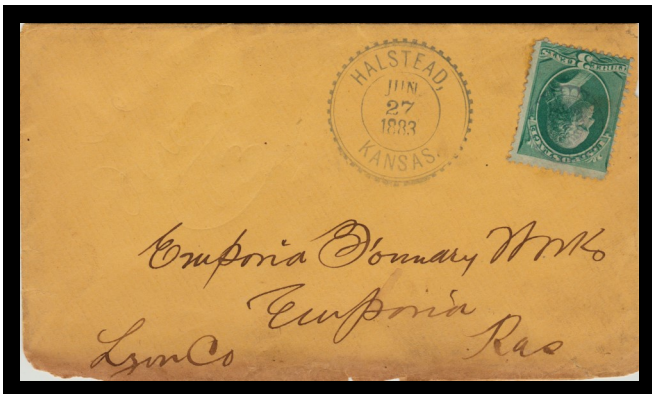 HALSTEAD,
JUN.
27
1883
KANSAS.
Emporia Founary Works
Emporia
Lyon Co Kas